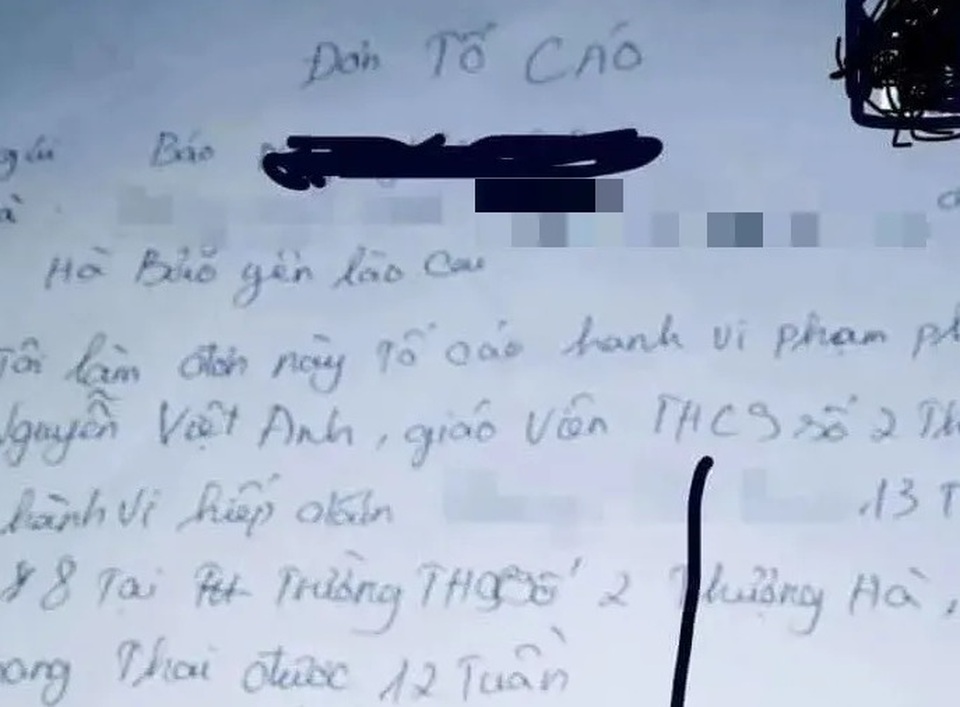 Đơn TỐ CÁO
gửi Báo
à
Hà Bảo yên lào Cai
Tôi làm đơn này Tố cáo hanh vi phạm ph
Nguyễn Việt Anh, giáo viên THCS số 2 Th
hành vi hiếp dâm , 13 T
8 Tại Trường THCS số 2 Thượng Hà,
mang Thai được 12 Tuần